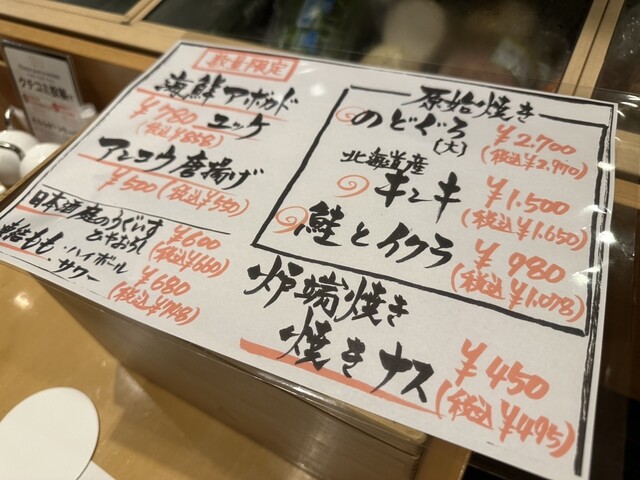 数量限定
海鮮アボカド
ユッケ
¥780
(税込¥858)
アンコウ唐揚げ
¥500(税込¥550)
日本酒 庭のうぐいす
どぶろく
¥600
(税込¥660)
もも・ハイボール
・サワー
¥680
(税込¥748)
原始焼き
のどぐろ
(大)
¥2.700
(税込¥2.970)
北海道産
キンキ
¥1.500
(税込¥1.650)
鮭とイクラ
¥980
(税込¥1.078)
炉端焼き
焼きナス
¥450
(税込¥495)
クチコミ投稿